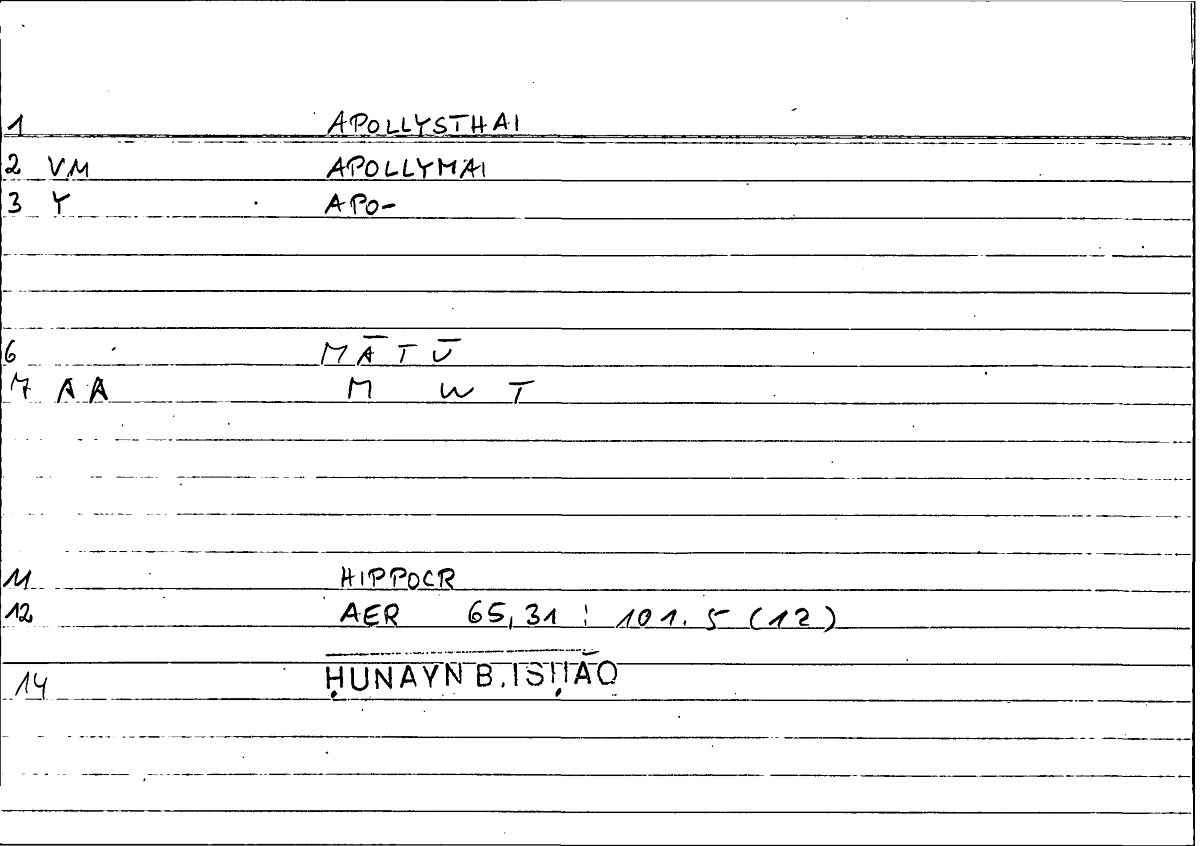 1 APOLLYSTHAI
2 VM APOLLYMAI
3 Y APO-
6 MĀTŪ
7 AA M W T
11 HIPPOCR
12 AER 65,31 : 101.5 (12)
14 ḤUNAYN B. ISḤĀQ